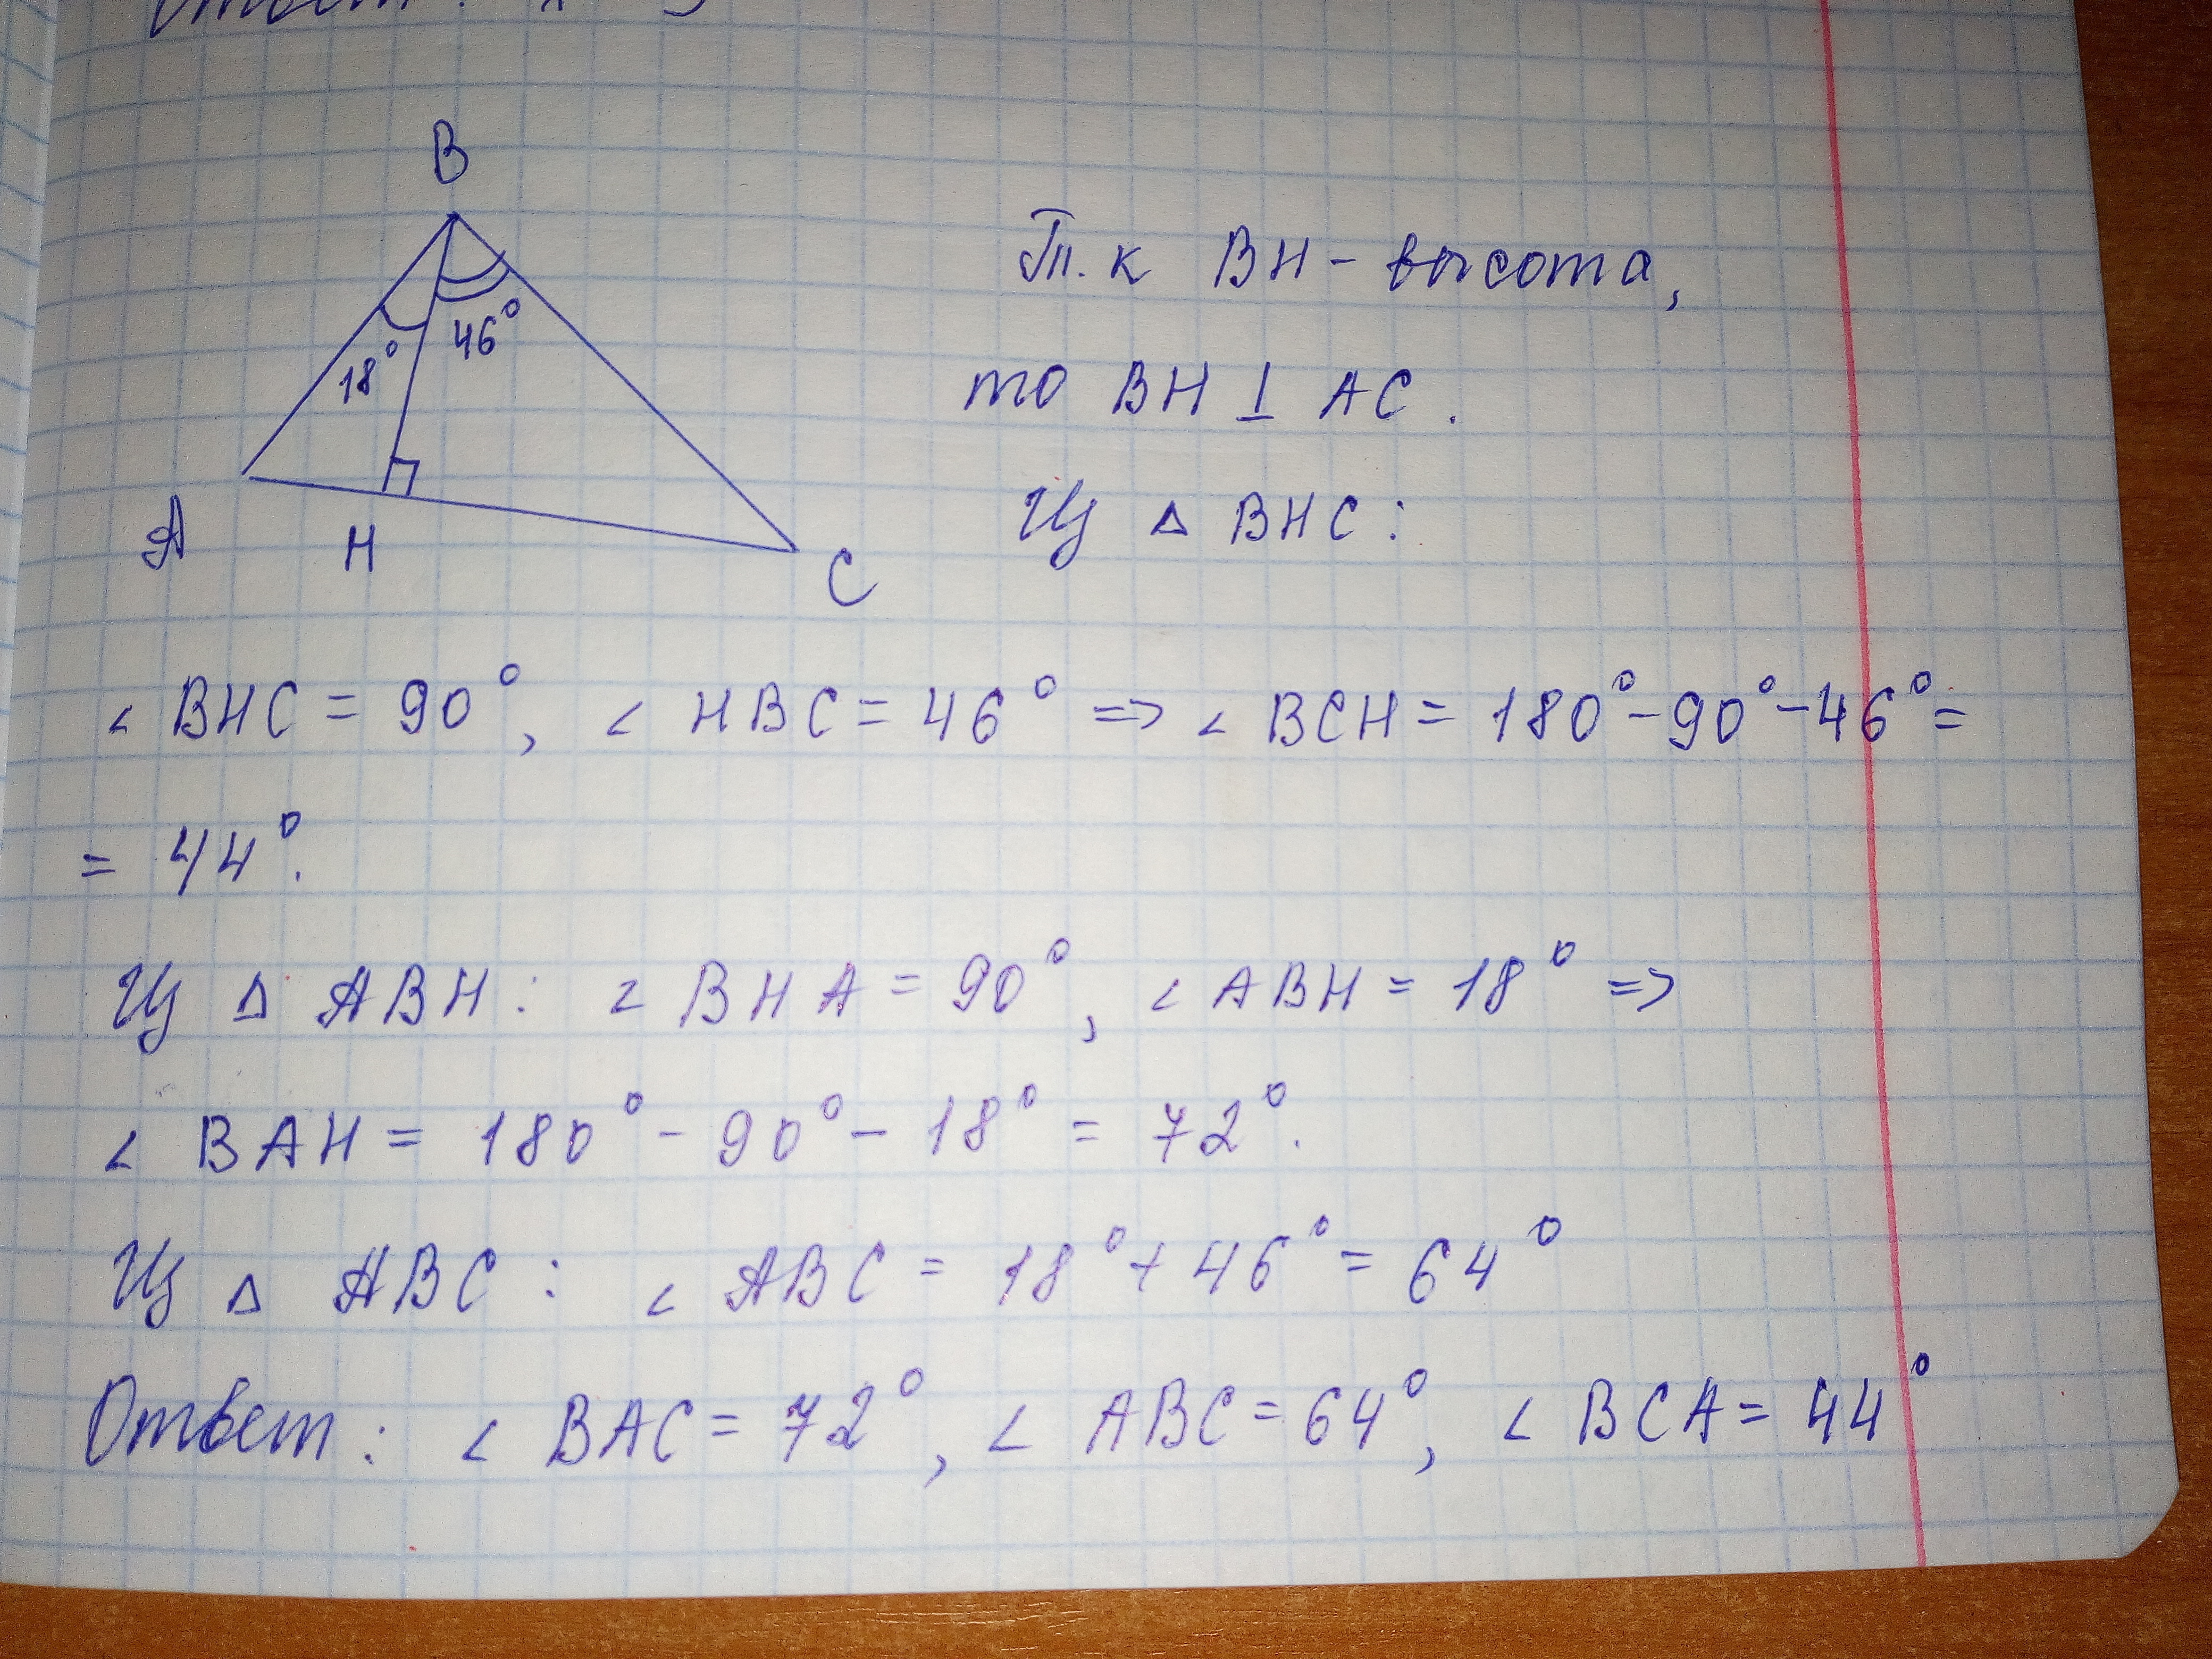 Ответ:
B
18° 46°
A H C
Т.к BH - высота,
то BH ⊥ AC.
Из △ BHC:
∠ BHC = 90°, ∠ HBC = 46° => ∠ BCH = 180° - 90° - 46° =
= 44°.
Из △ ABH: ∠ BHA = 90°, ∠ ABH = 18° =>
∠ BAH = 180° - 90° - 18° = 72°.
Из △ ABC: ∠ ABC = 18° + 46° = 64°
Ответ: ∠ BAC = 72°, ∠ ABC = 64°, ∠ BCA = 44°